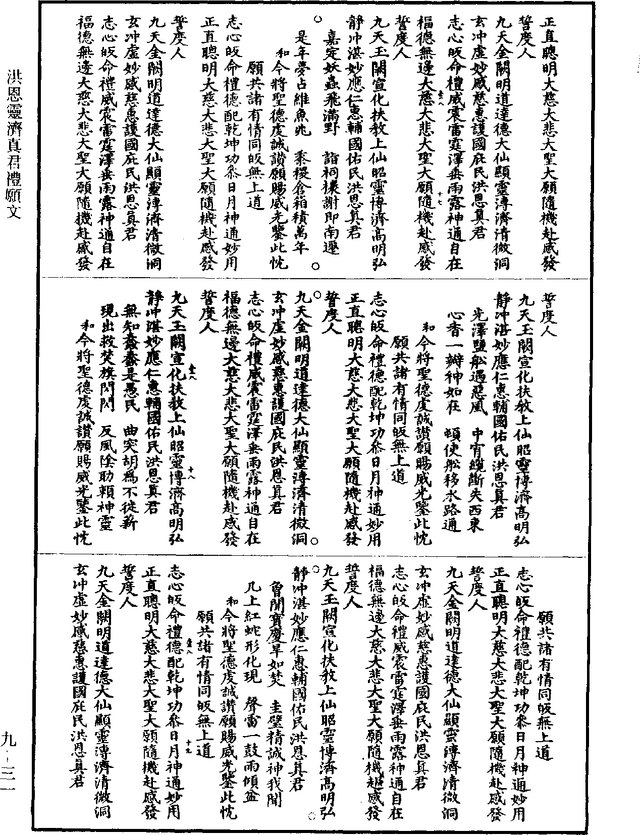 正直聰明大慈大悲大聖大願隨機赴感發
誓度人
九天金闕明道達德大仙顯靈溥濟清微洞
玄冲虛妙感慈惠護國庇民洪恩真君
志心皈命禮威震雷霆澤垂雨露神通自在
福德無邊大慈大悲大聖大願隨機赴感發
誓度人
九天玉闕宣化扶教上仙昭靈博濟高明弘
靜冲湛妙應仁惠輔國佑民洪恩真君
嘉定妖蟲飛滿野 詣祠禳謝即南還
是年夢占維魚兆 黍稷倉箱積萬年
和今將聖德虔誠讚願賜威光鑒此忱
願共諸有情同皈無上道
志心皈命禮德配乾坤功參日月神通妙用
正直聰明大慈大悲大聖大願隨機赴感發
誓度人
九天金闕明道達德大仙顯靈溥濟清微洞
玄冲虛妙感慈惠護國庇民洪恩真君
志心皈命禮威震雷霆澤垂雨露神通自在
福德無邊大慈大悲大聖大願隨機赴感發
誓度人
九天玉闕宣化扶教上仙昭靈博濟高明弘
靜冲湛妙應仁惠輔國佑民洪恩真君
光澤鹽船遇惡風 中有纜斷失西東
心香一瓣神如在 頓使船移水路通
和今將聖德虔誠讚願賜威光鑒此忱
願共諸有情同皈無上道
志心皈命禮德配乾坤功參日月神通妙用
正直聰明大慈大悲大聖大願隨機赴感發
誓度人
九天金闕明道達德大仙顯靈溥濟清微洞
玄冲虛妙感慈惠護國庇民洪恩真君
志心皈命禮威震雷霆澤垂雨露神通自在
福德無邊大慈大悲大聖大願隨機赴感發
誓度人
九天玉闕宣化扶教上仙昭靈博濟高明弘
靜冲湛妙應仁惠輔國佑民洪恩真君
無知蠢蠢是愚民 曲突胡為不徙薪
現出救焚旗閃閃 反風陰助賴神靈
和今將聖德虔誠讚願賜威光鑒此忱
願共諸有情同皈無上道
志心皈命禮德配乾坤功參日月神通妙用
正直聰明大慈大悲大聖大願隨機赴感發
誓度人
九天金闕明道達德大仙顯靈溥濟清微洞
玄冲虛妙感慈惠護國庇民洪恩真君
志心皈命禮威震雷霆澤垂雨露神通自在
福德無邊大慈大悲大聖大願隨機赴感發
誓度人
九天玉闕宣化扶教上仙昭靈博濟高明弘
靜冲湛妙應仁惠輔國佑民洪恩真君
魯閩寶慶旱如焚 圭璧精誠神我聞
几上紅蛇形化現 聲雷一鼓雨傾盆
和今將聖德虔誠讚願賜威光鑒此忱
願共諸有情同皈無上道
志心皈命禮德配乾坤功參日月神通妙用
正直聰明大慈大悲大聖大願隨機赴感發
誓度人
九天金闕明道達德大仙顯靈溥濟清微洞
玄冲虛妙感慈惠護國庇民洪恩真君
洪恩靈濟真君禮願文
九-三一